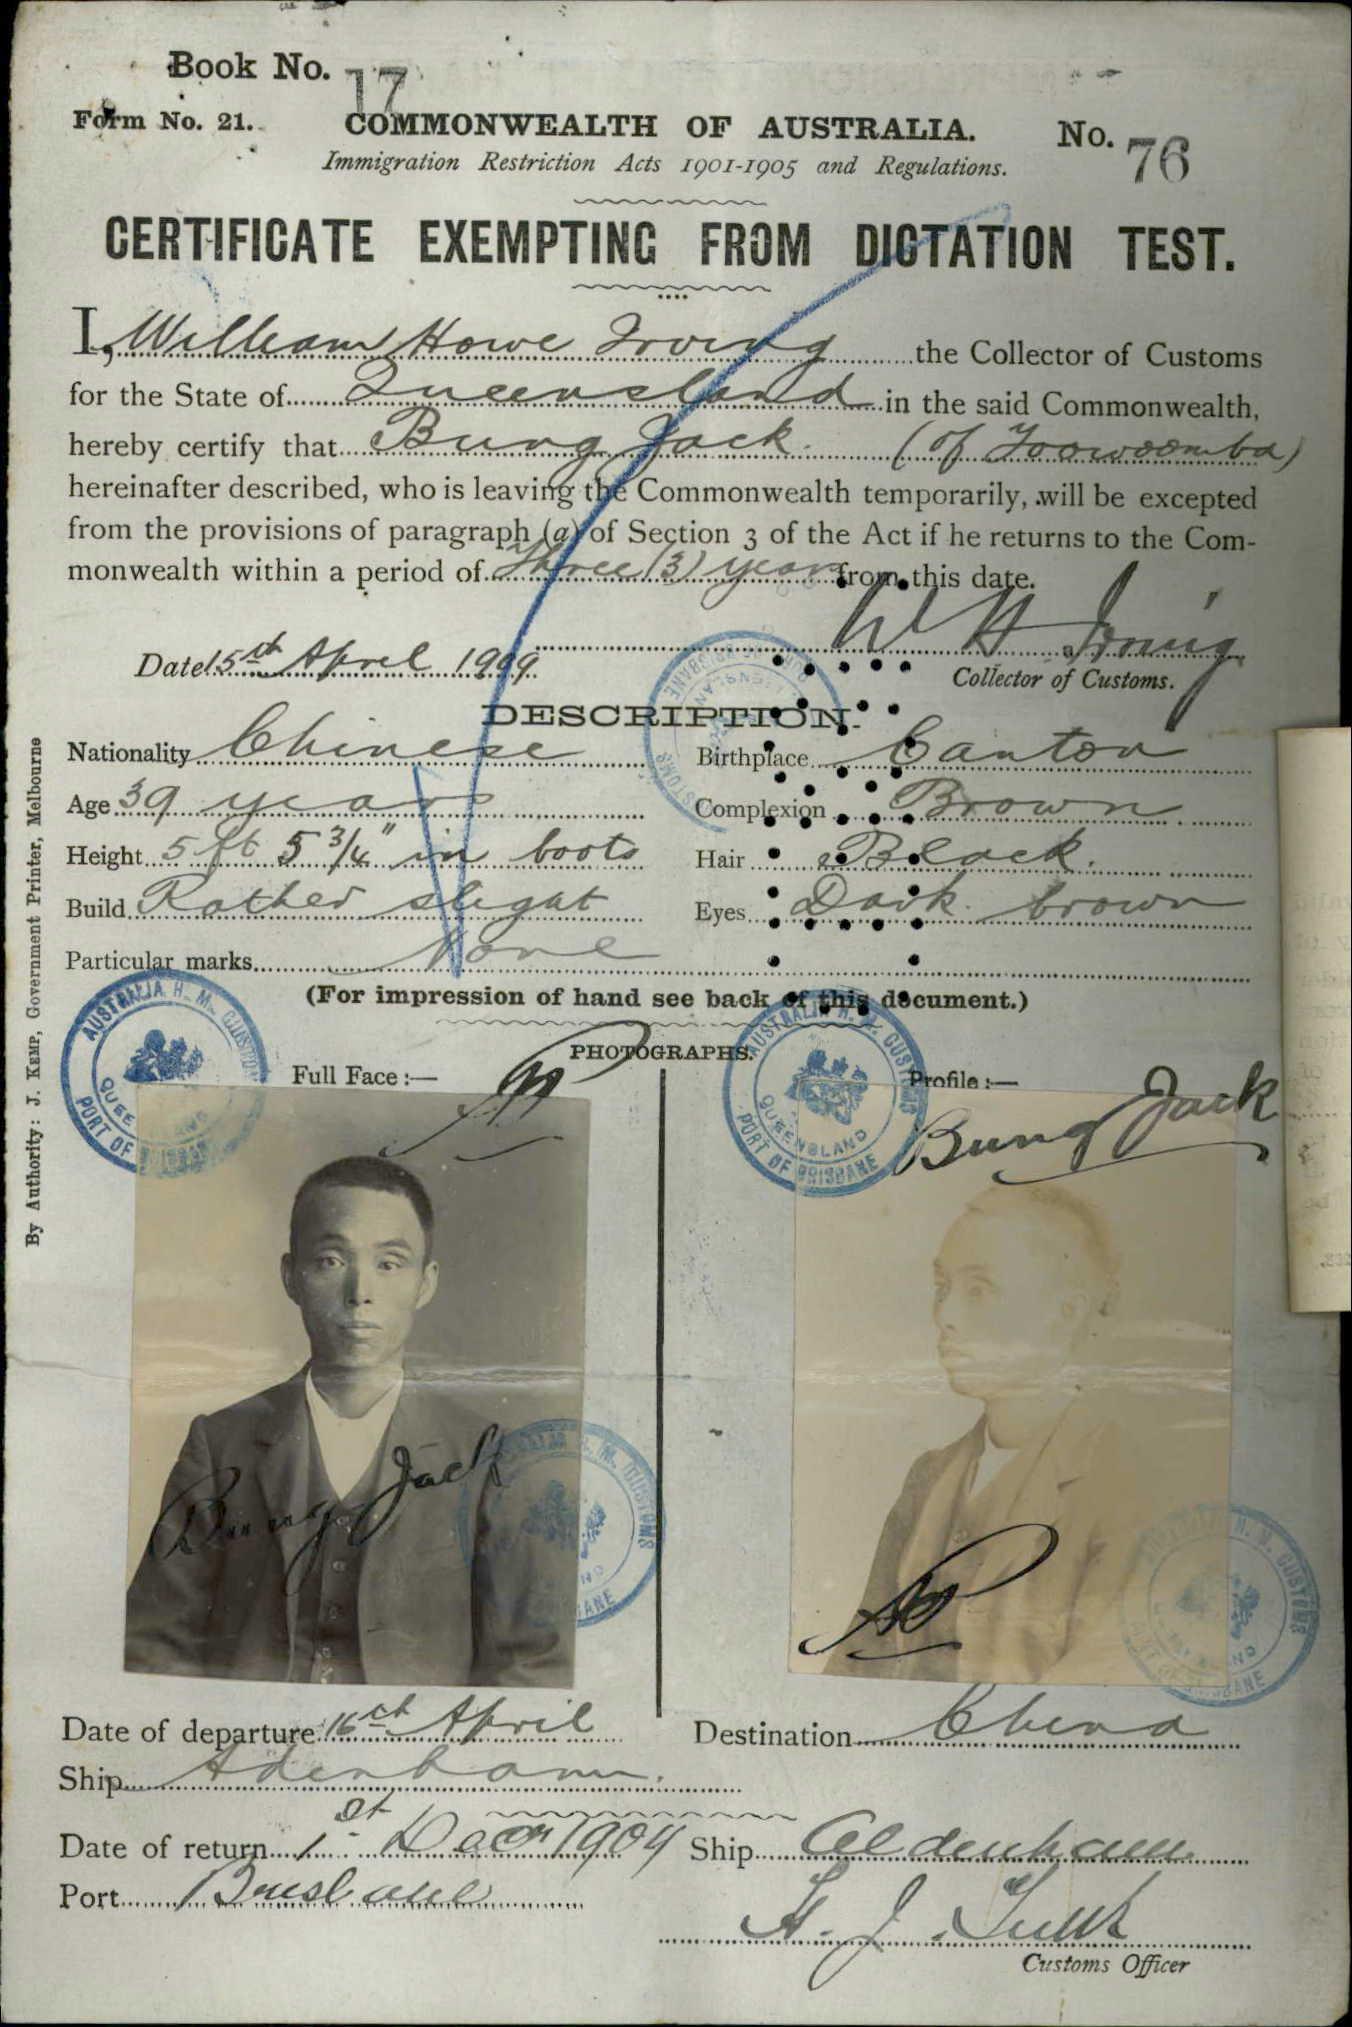 Book No. 17
Form No. 21. COMMONWEALTH OF AUSTRALIA. No. 76
Immigration Restriction Acts 1901-1905 and Regulations.
CERTIFICATE EXEMPTING FROM DICTATION TEST.
I, William Howe Irving the Collector of Customs
for the State of Queensland in the said Commonwealth,
hereby certify that Bung Jack. (of Toowoomba)
hereinafter described, who is leaving the Commonwealth temporarily, will be excepted
from the provisions of paragraph (a) of Section 3 of the Act if he returns to the Com-
monwealth within a period of Three (3) years from this date.
W H Irving
Date 15th April 1909. Collector of Customs.
DESCRIPTION.
Nationality Chinese Birthplace Canton
Age 39 years Complexion Brown
Height 5 ft 5 3/4" in boots Hair Black.
Build Rather slight Eyes Dark brown
Particular marks None
(For impression of hand see back of this document.)
PHOTOGRAPHS.
Full Face :— Profile :—
AUSTRALIA H. M. CUSTOMS
QUEENSLAND
PORT OF BRISBANE
Bung Jack
Bung Jack
Date of departure 16th April Destination China
Ship Aldenham.
Date of return 1st Decr 1909 Ship Aldenham
Port Brisbane
Customs Officer
By Authority: J. KEMP, Government Printer, Melbourne